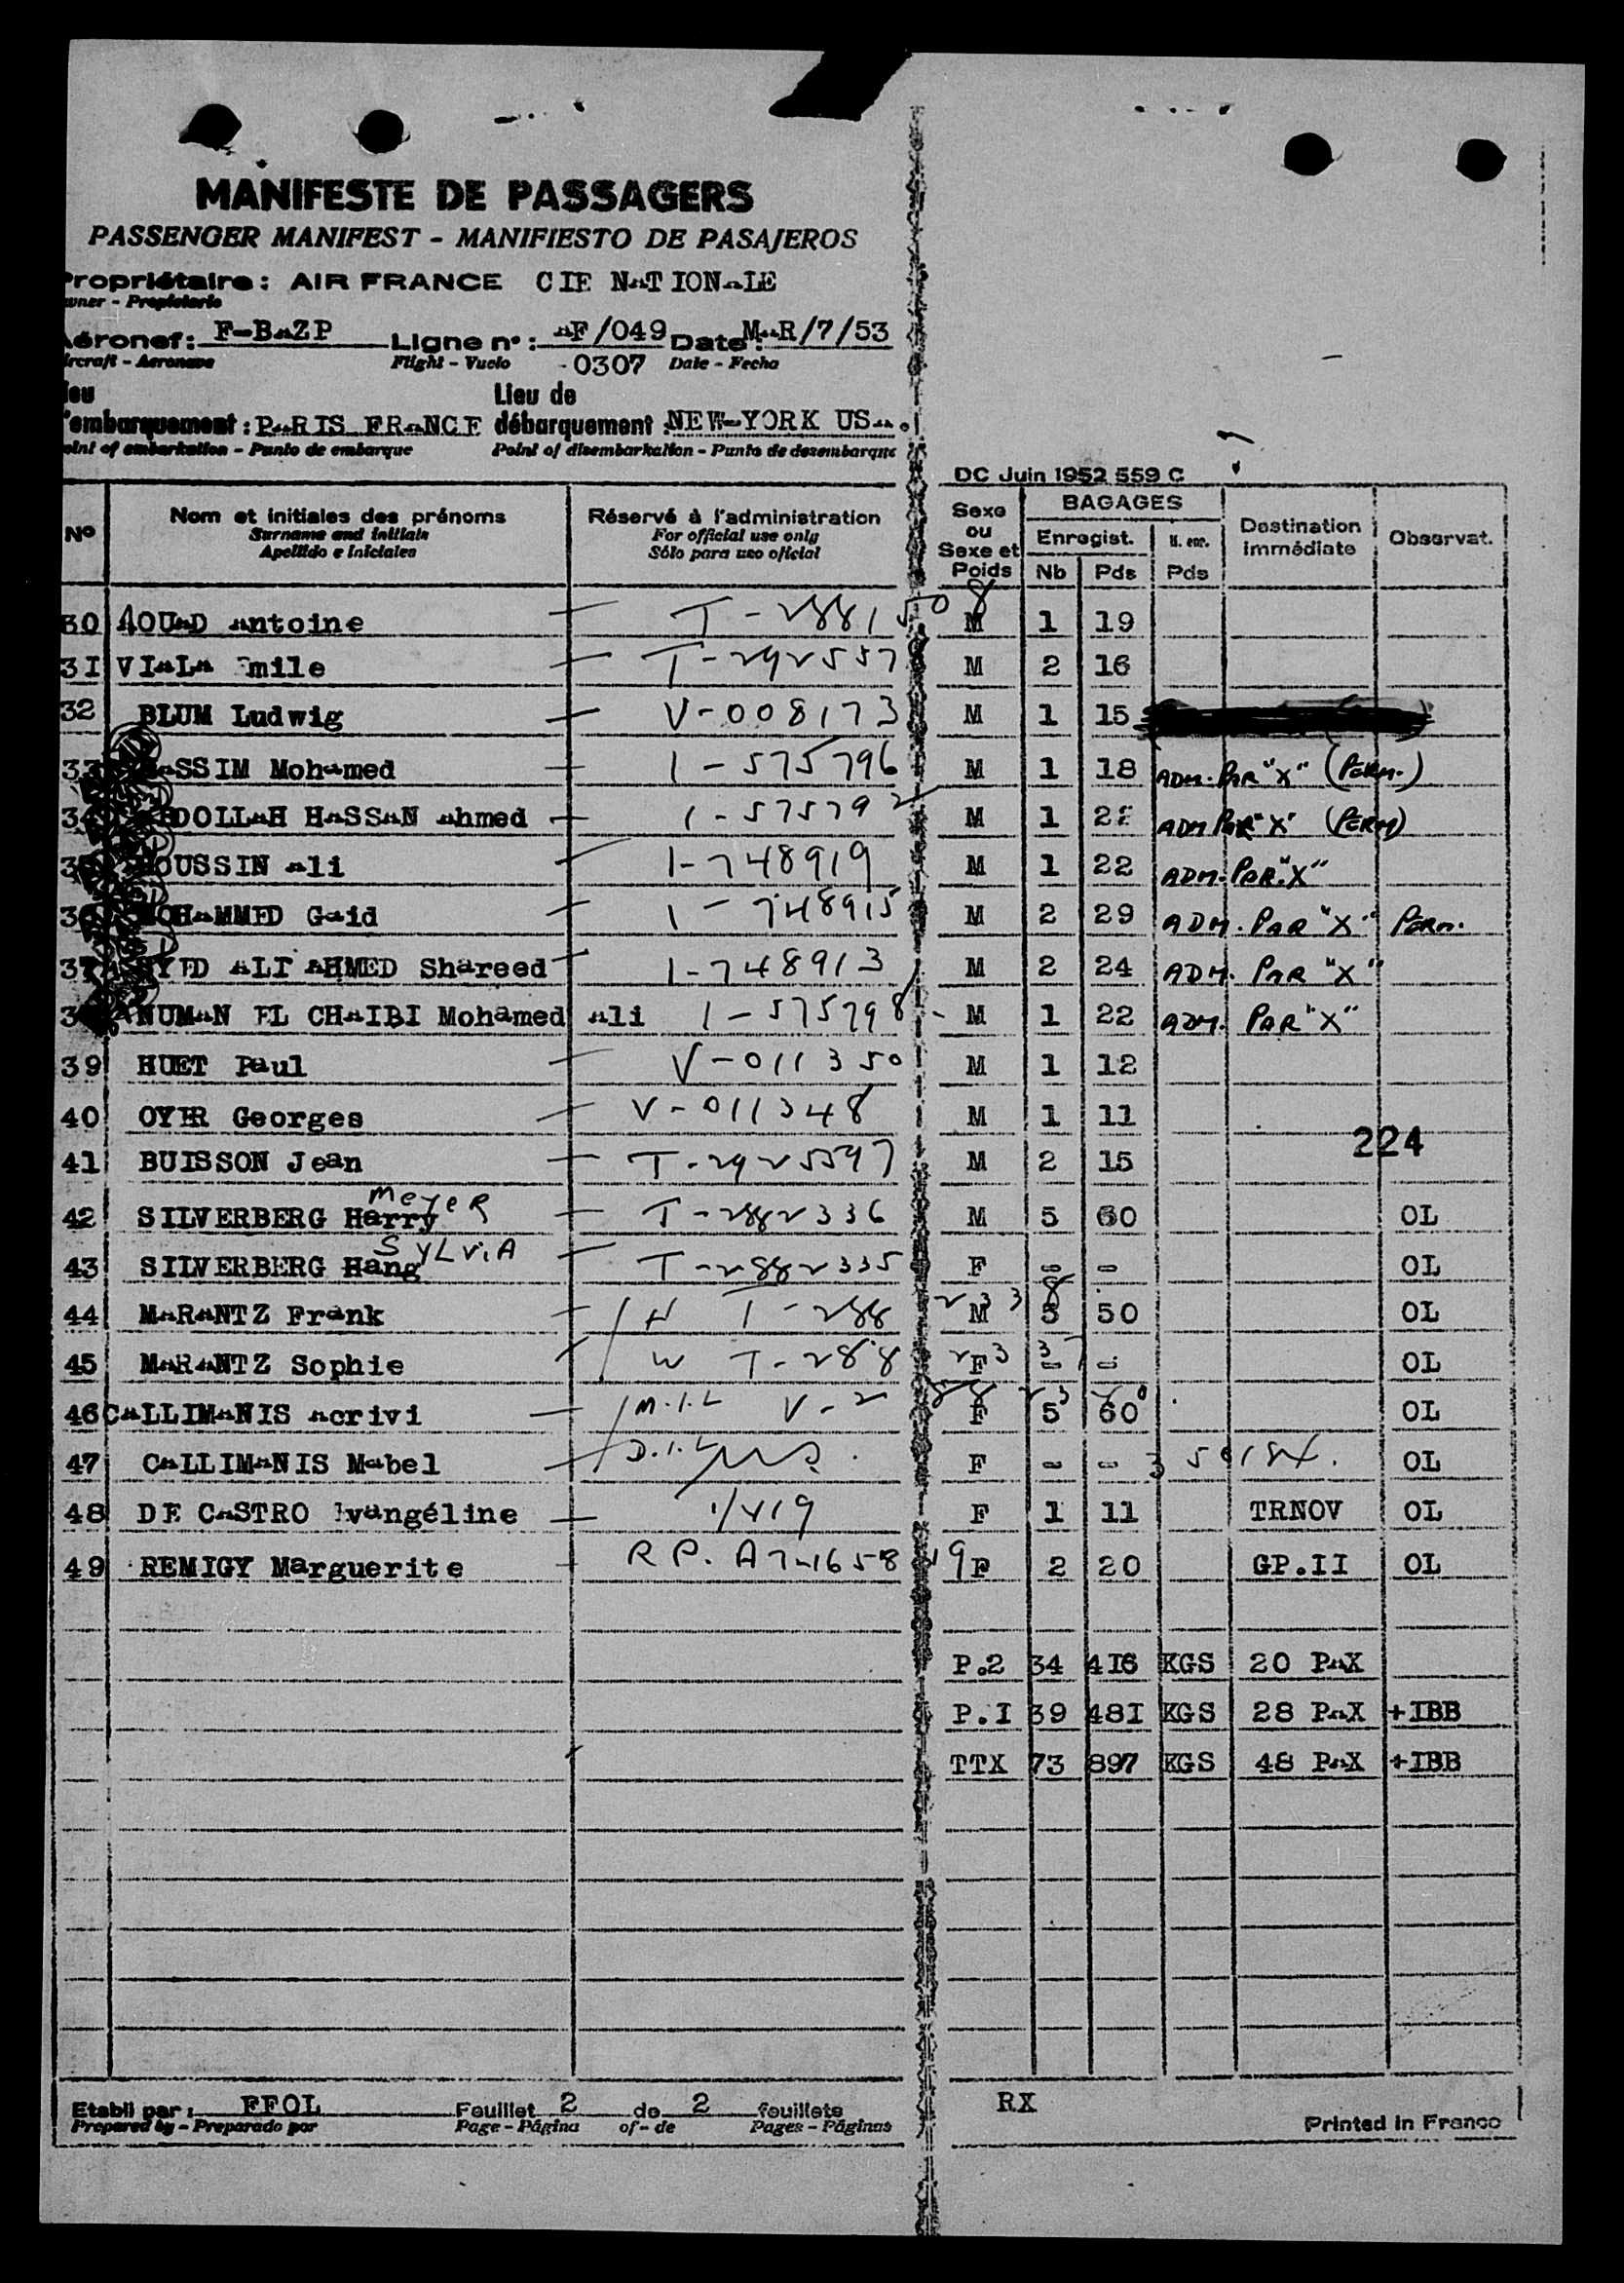 MANIFESTE DE PASSAGERS
PASSENGER MANIFEST - MANIFIESTO DE PASAJEROS
Propriétaire : AIR FRANCE CIE NATIONALE
Owner - Propietario
Aéronef : F-BAZP Ligne n° : AF/049 Date : MAR/7/53
Aircraft - Aeronave Flight - Vuelo -0307 Date - Fecha
Lieu Lieu de
d'embarquement : PARIS FRANCE débarquement : NEW-YORK USA.
Point of embarkation - Punto de embarque Point of disembarkation - Punto de desembarque
DC Juin 1952 559 C
N° Nom et initiales des prénoms Réservé à l'administration Sexe ou Sexe et Poids BAGAGES Destination immédiate Observat.
Surname and initials For official use only Enregist. N. enr.
Apellido e Iniciales Sólo para uso oficial Nb Pds Pds
30 AOUAD Antoine T-2881508 M 1 19
31 VIALA Emile T-292557 M 2 16
32 BLUM Ludwig V-008173 M 1 15
33 ASSIM Mohamed 1-575796 M 1 18 ADM. PAR "X" (PERM.)
DOLLAH HASSAN Ahmed 1-575792 M 1 22 ADM PAR "X" (PERM)
OUSSIN Ali 1-748919 M 1 22 ADM. PAR. "X"
MOHAMMED Gaid 1-748915 M 2 29 ADM. PAR "X" PERM.
37 YED ALI AHMED Shareed 1-748913 M 2 24 ADM. PAR "X"
NUMAN EL CHAIBI Mohamed Ali 1-575798 M 1 22 ADM. PAR "X"
39 HUET Paul V-011350 M 1 12
40 OYER Georges V-011348 M 1 11
224
41 BUISSON Jean T-2925597 M 2 15
Meyer
42 SILVERBERG Harry T-2882336 M 5 60 OL
SYLVIA
43 SILVERBERG Hang T-2882335 F - - OL
44 MARANTZ Frank H T-2882338 M 5 50 OL
45 MARANTZ Sophie W T-2882337 F - - OL
46 CALLIMANIS Acrivi M.I.L V-2 F 5 60 OL
47 CALLIMANIS Mabel D.I.L F - - OL
48 DE CASTRO Evangéline F 1 11 TRNOV OL
49 REMIGY Marguerite R P. A7-1658 F 2 20 GP.II OL
P.2 34 416 KGS 20 PAX
P.I 39 48I KGS 28 PAX +IBB
TTX 73 897 KGS 48 PAX +IBB
Etabli par : FFOL Feuillet 2 de 2 feuillets RX
Prepared by - Preparado por Page - Página of - de Pages - Páginas Printed in France